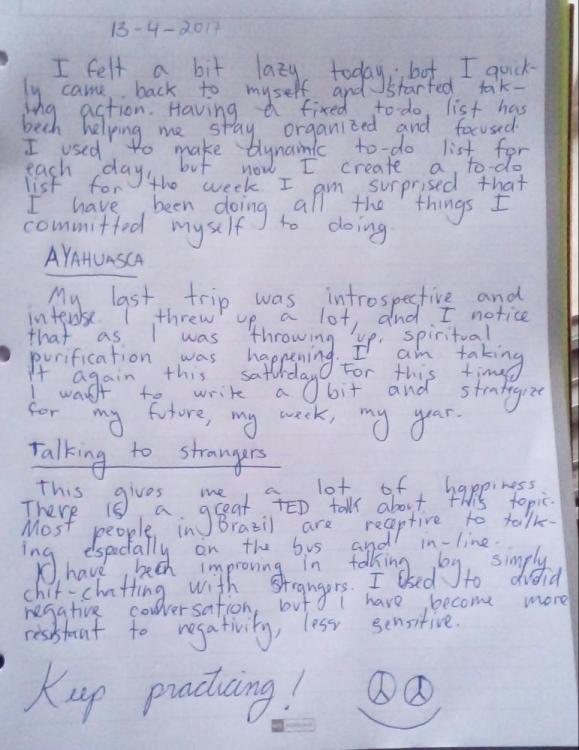 13-4-2017
I felt a bit lazy today, but I quick-
ly came back to myself and started tak-
ing action. Having a fixed to-do list has
been helping me stay organized and focused.
I used to make dynamic to-do list for
each day, but now I create a to-do
list for the week. I am surprised that
I have been doing all the things I
committed myself to doing.
AYAHUASCA
My last trip was introspective and
intense. I threw up a lot, and I notice
that as I was throwing up, spiritual
purification was happening. I am taking
it again this saturday. For this time,
I want to write a bit and strategize
for my future, my week, my year.
Talking to strangers
This gives me a lot of happiness.
There is a great TED talk about this topic.
Most people in Brazil are receptive to talk-
ing especially on the bus and in-line.
I have been improving in talking by simply
chit-chatting with strangers. I used to avoid
negative conversation, but I have become more
resistant to negativity, less sensitive.
Keep practicing!